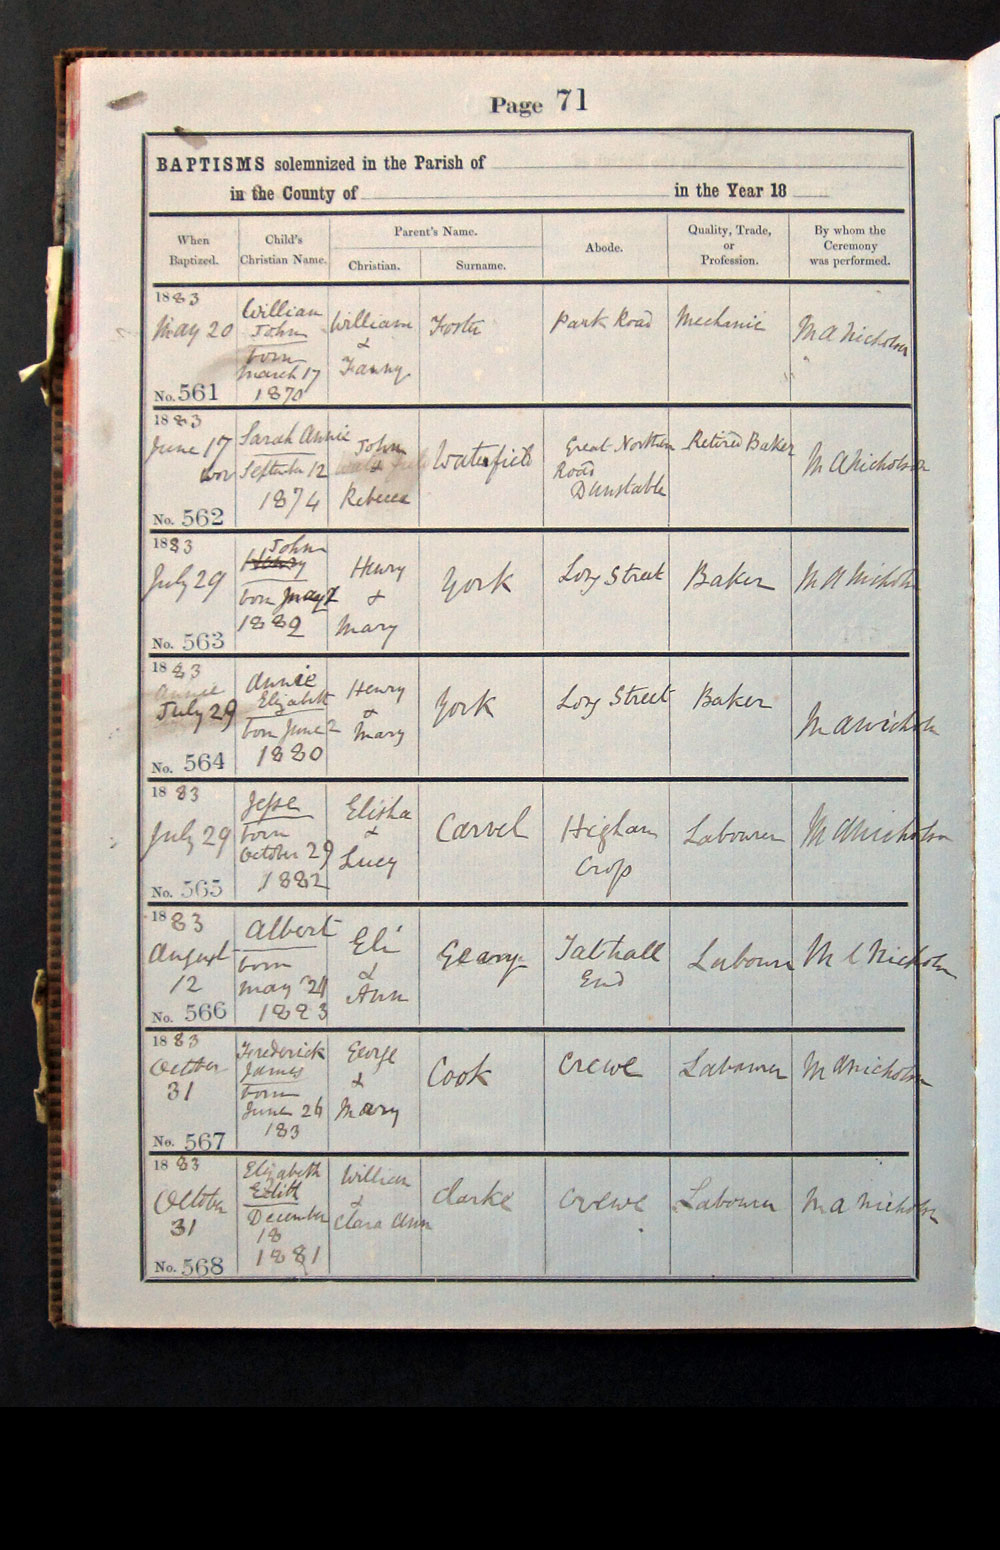 Page 71
BAPTISMS solemnized in the Parish of
in the County of in the Year 18
When Baptized. Child's Christian Name. Parent's Name. Christian. Surname. Abode. Quality, Trade, or Profession. By whom the Ceremony was performed.
1883
May 20
No. 561
William
John
born
March 17
1870
William
&
Fanny
Foster
Park Road
Mechanic
M A Nicholson
1883
June 17
No. 562
Sarah Annie
born September 12
1874
John
&
Rebecca
Waterfield
Great Northern
Road
Dunstable
Retired Baker
M A Nicholson
1883
July 29
No. 563
John
Henry
born May 2
1882
Henry
&
Mary
York
Baker
M A Nicholson
1883
Annie
July 29
No. 564
Annie
Elizabeth
born June 2
1880
Henry
&
Mary
York
Baker
M A Nicholson
1883
July 29
No. 565
Jesse
born
October 29
1882
Elisha
&
Lucy
Carvel
Higham
Labourer
M A Nicholson
1883
August
12
No. 566
Albert
born
May 21
1883
Eli
&
Ann
Geary
End
Labourer
Nicholson
1883
October
31
No. 567
Frederick
James
born
June 26
183
George
&
Mary
Cook
Crewe
Labourer
M A Nicholson
1883
October
31
No. 568
Elizabeth
Edith
December
18
1881
William
&
Clara Ann
Clarke
Crewe
Labourer
M A Nicholson